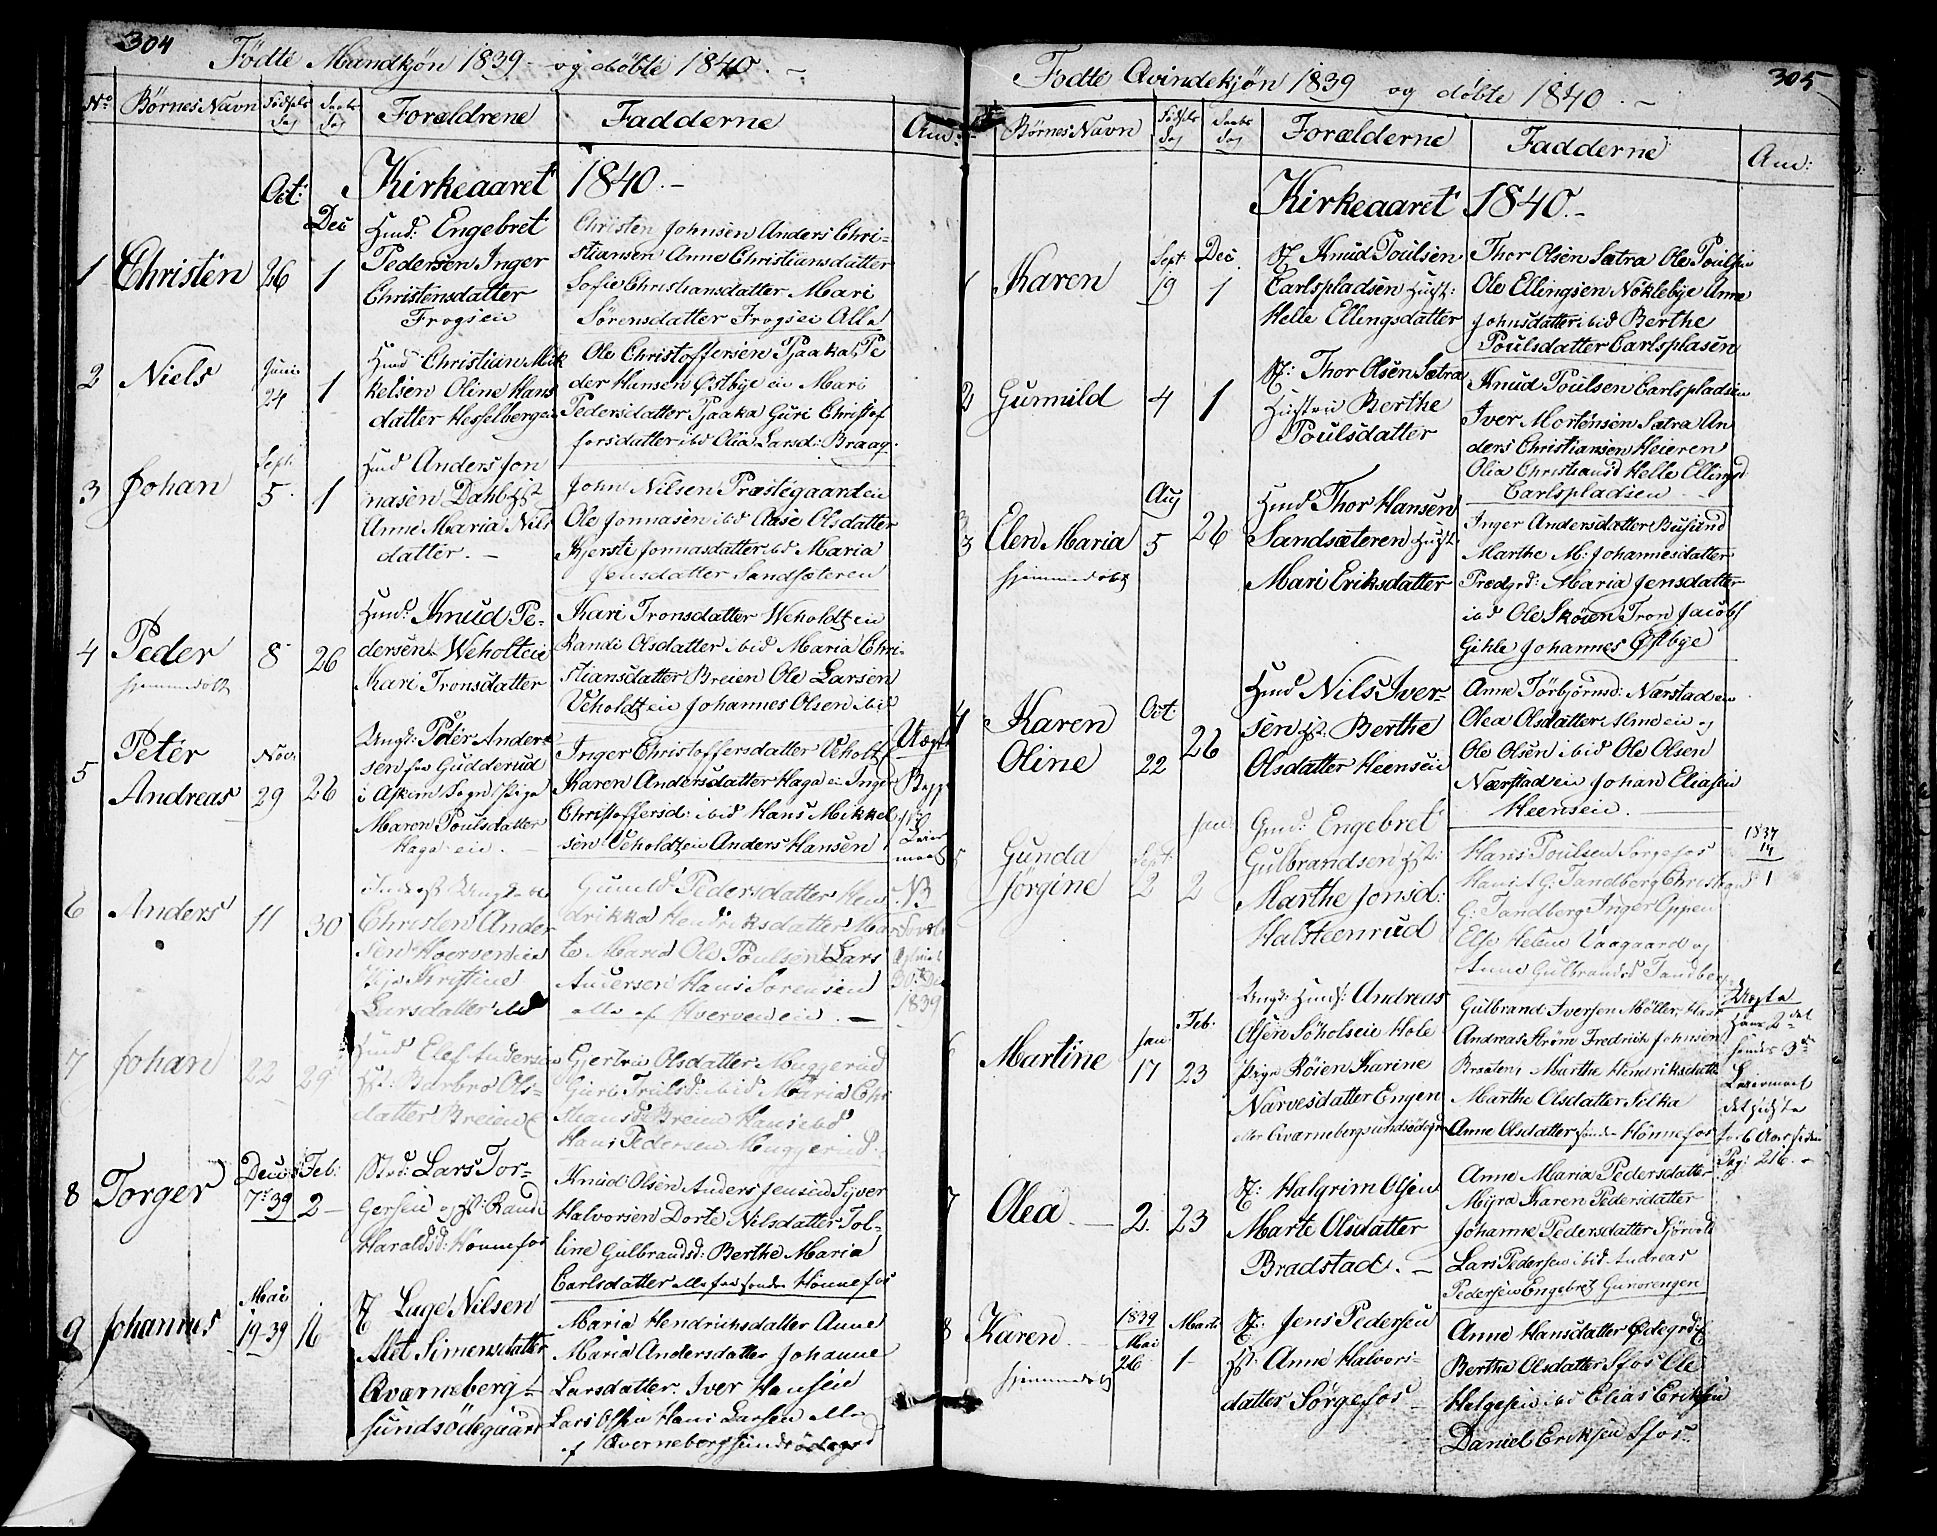 304
Födte Mandkjön 1839 og döbte 1840.
No Börnes Navn Födsels Dag Daabs Dag Forældrene Fadderne Anm:
Kirkeaaret 1840.
Oct: Dec
1 Christen 26 1
Huusm: Engebret
Pedersen Inger
Christensdatter
Frogsei
Christen Johnsen Anders Chri-
stiansen Anne Christiansdatter
Sofie Christiansdatter Mari
Sörensdatter Frogsei Alle
2 Niels Junii 24 1
Christian Mik
kelsen Oline Hans
datter Hesselberg
Ole Christoffersen Tjaaka Pe
der Hansen Östbye ei Mari
Pedersdatter Tjaaka Guri Christof
forsdatter ibd Olia Larsd: Braag
3 Johan Sept. 5 1
Anders Jon
nasen Dahl
Anne Maria Nils
datter.
John Nilsen Præstegaardei
Ole Jonnasen ibd Aase Olsdatter
Kjersti Jonnasdatter ibd Maria
Jensdatter Sandsæteren
4 Peder 8 26
hjemmedöbt
Knud Pe-
dersen Weholtei
Kari Tronsdatter
Kari Tronsdatter Weholtei
Randi Olsdatter ibid Maria Chri-
stiansdatter Breien Ole Larsen
Veholdtei Johannes Olsen ibid
5 Peter
Andreas Nov. 29 26
Ungk: Peter Ander
sen fra Gudderud
i Askim Sogn Pige
Maren Poulsdatter
Haga ei
Inger Christoffersdatter Veholt
Karen Andersdatter Haga ei Inger
Christoffersd: ibid Hans Mikkel
sen Veholdtei Anders Hansen
Uægte
6 Anders 11 30
Christen Ander
sen Hoervenei
Kristine
Larsdatter ibd
Gunild Pedersdatter Hen
drikka Hendriksdatter Mar
te Maria Ole Poulsen Lars
Andersen Hans Sörensen
alle af Hvervenei.
NB
1839
7 Johan 22 29
Elef Andersen
Barbro Ols-
datter Breien
Gjertru Olsdatter Muggerud
Guri Trulsd: ibid Maria Chr
stiansd: Breien Hans ibd
Hans Pedersen Muggerud.
8 Torger Decbr 7 39 Feb: 2
Lars Tor-
gersen og Randi
Haraldsd: Hönnefos
Knud Olsen Anders Jensen Syver
Halvorsen Dorte Nilsdatter Tol-
line Gulbrandsd: Berthe Maria
Carlsdatter alle fra sondre Hönnefos
9 Johannes Mai 19-39 16
Lage Nilsen
Alet Simensdatter
Qværneberg
sundsödegaard
Maria Hendrichsdatter Anne
Maria Andersdatter Johanne
Larsdatter Iver Hansen
Lars Olsen Hans Larsen alle
af Qværnebergsundsödegrd
305
Födte Qvindekjön 1839 og döbte 1840.
Börnes Navn Födsels Dag Daabs Dag Forælderne Fadderne Anm:
Kirkeaaret 1840.
1 Karen Sept: 19 Dec 1
Knud Poulsen
Carlspladsen Hust:
Helle Ellingsdatter
Thor Olsen Sætra Ole Poulsen
Ole Ellingsen Noklebye Anne
Johnsdatter ibid Berthe
Poulsdatter Carlsplasen
2 Gunnild 4 1
Thor Olsen Sætra
Hustru Berthe
Poulsdatter
Knud Poulsen Carlspladsen
Iver Mortensen Sætra An
ders Christiansen Heieren
Olia Christiansd Helle Ellingsd
Carlspladsen
3 Elen Maria Aug 5 26
hjemmedöbt
Thor Hansen
Sandsæteren Hust.
Mari Eriksdatter
Inger Andersdatter Busund
Marthe M: Johannesdatter
Prædgrd: Maria Jensdatter
ibd Ole Skoien Tron Jacobs
Gihle Johannes Östbye
4 Karen
Oline Oct 22 26
Nils Iver-
sen Berthe
Olsdatter Heensei
Anne Törbjörnsd: Nærstad ei
Olea Olsdatter Alme ei og
Ole Olsen ibid Ole Olsen
Nærstad ei Johan Eliasen
Heensei.
5 Gunda
Jörgine Sept. 2 Jan 2
Engebret
Gulbrandsen
Marthe Jonsd:
Halsteenrud
Hans Poulsen Sorgefos
Hans G: Tandberg Christian
G: Tandberg Inger Oppen
Else Helene Vaagaard og
Anne Gulbrandsd Tandberg
6 Martine Jan 17 Feb. 23
Andreas
Olsen Soholsei Hole
Pige Röien Karine
Narvesdatter Engen
eller Qværnebergsundsödegrd
Gulbrand Iversen Möller, Hans
Andreas Strøm Fredrich Johnsen
Braaten, Marthe Hendriksdatter
Marthe Olsdatter Silka
Anne Olsdatter sondre Hönnefos
Uægte
Hans 2det
hendes 3de
Leiermaal
det sidste
for 6 Aar siden
Pag: 216.
7 Olea 2 23
Halgrim Olsen
Marte Olsdatter
Bradstad.
Anne Maria Pedersdatter
Myra Karen Pedersdatter
Johanne Pedersdatter Hjörvold
Lars Pedersen ibid Andreas
Pedersen Engebret Gunorengen
8 Karen 1839 Mai 26 Marts 1
hjemmedöbt
Jens Pedersen
Anne Halvors-
datter Sörgefos
Anne Hansdatter Ödegrd
Berthe Olsdatter Sfos Ole
Helgesen ibd Elias Eriksen
Daniel Eriksen Sfos